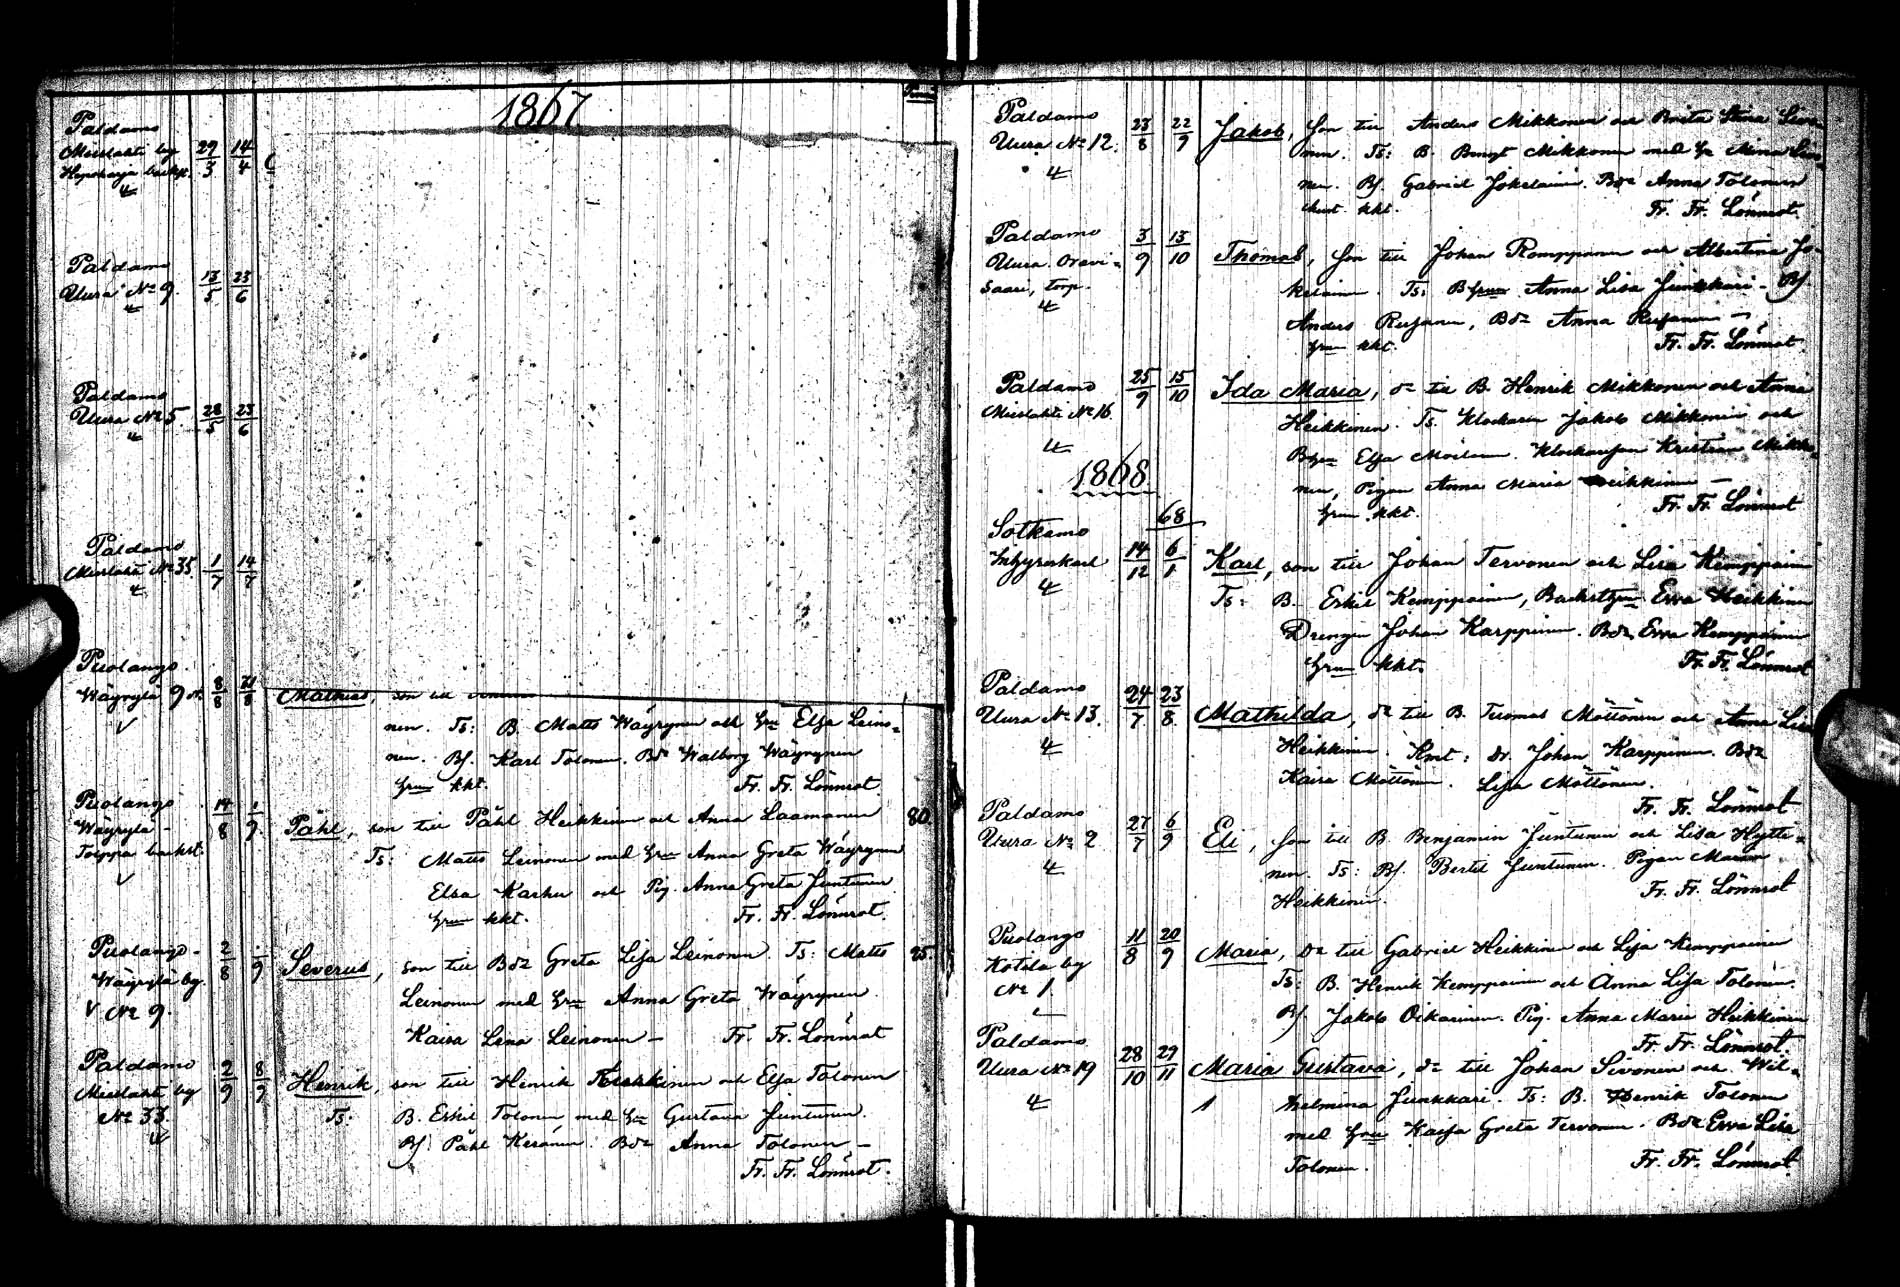 1867
Paldamo
Mieslahti by 29/3 14/4
4
Paldamo
Uura No 9. 13/5 23/6
4
Paldamo
Uura No 5 28/5 23/6
4
Paldamo
Mieslahti No 35 1/7 14/7
4
Puolango
Wäyrylä 9 8/8 21/8 Mathias, son till
nen. Ts: B. Matts Wäyrynen och hu Elsa Leino-
nen. Bs. Karl Tolonen. Bdr Walborg Wäyrynen
hem kkt. Fr. Fr. Lönnrot
Puolango 14/8 1/9 Påhl, son till Påhl Heikkinen och Anna Laamanen 80
Wäyrylä
Toippa backst. Ts: Matts Leinonen med hru Anna Greta Wäyrynen
Elsa Karhu och Pig. Anna Greta Juntunen
hem kkt. Fr. Fr. Lönnrot.
Puolango 2/8 /9 Severus, son till Bdr Greta Lisa Leinonen. Ts: Matts 25.
Wäyrylä by Leinonen med hru Anna Greta Wäyrynen.
No 9. Kaisa Lena Leinonen Fr. Fr. Lönnrot
Paldamo
Mieslahti by 2/9 8/9 Henrik, son till Henrik och Elsa Tolonen
No 33. Ts. B. Eskil Tolonen med hru Gustava Juntunen.
4 Bs. Påhl Keränen. Bdr Anna Tolonen
Fr. Fr. Lönnrot.
Paldamo
Uura No 12. 23/8 22/9 Jakob, son till Anders Mikkonen och Brita Stina
nen. Ts: B. Bengt Mikkonen med hu
4 nen. Bs. Gabriel Jokelainen. Bdr Anna Tolonen
kkt. Fr. Fr. Lönnrot.
Paldamo
Uura Oravi- 3/9 13/10 Thomas, son till Johan Romppanen och Albertina Jo-
saari, torp. kelainen. Ts: Bhrun Anna Lisa Junkkari. Bs.
4 Anders Rusanen, Bdr Anna Rusanen
hem kkt. Fr. Fr. Lönnrot
Paldamo 25/9 15/10 Ida Maria, dr till B. Henrik Mikkonen och Anna
Mieslahti No 16. Heikkinen. Ts. Klockaren Jakob Mikkonen och
4 Bhrun Elsa Moilanen. Kristian Mikko-
nen, Pigan Anna Maria Heikkinen
hem kkt. Fr. Fr. Lönnrot
1868.
68
Sotkamo 14/12 6/1 Karl, son till Johan Tervonen och Lisa Kemppainen
4 Ts: B. Eskil Kemppainen, Ewa Heikkinen
Drengen Johan Karppinen. Bdr Ewa Kemppainen
hem kkt. Fr. Fr. Lönnrot
Paldamo
Uura No 13. 24/7 23/8 Mathilda, dr till B. Tuomas Möttönen och Anna Lisa
4 Heikkinen. Kmt: Dr. Johan Karppinen. Bdr
Kaisa Möttönen. Lisa Möttönen.
Fr. Fr. Lönnrot
Paldamo
Uura No 2 27/7 6/9 Eli, son till B. Benjamin Juntunen och Lisa Hytti-
4 nen. Ts: Bs. Bertil Juntunen. Pigan Maria
Heikkinen. Fr. Fr. Lönnrot
Puolango
Kotila by 11/8 20/9 Maria, Dr till Gabriel Heikkinen och Lisa Kemppainen
No 1. Ts: B. Henrik Kemppainen och Anna Lisa Tolonen.
Bs. Jakob Oikarinen. Pig. Anna Maria Heikkinen
Fr. Fr. Lönnrot.
Paldamo
Uura No 19 28/10 29/11 Maria Gustava, dr till Johan Sivonen och Wil-
4 1 helmina Junkkari. Ts: B. Henrik Tolonen
med hru Kaisa Greta Tervonen. Bdr Ewa Lisa
Tolonen. Fr. Fr. Lönnrot.